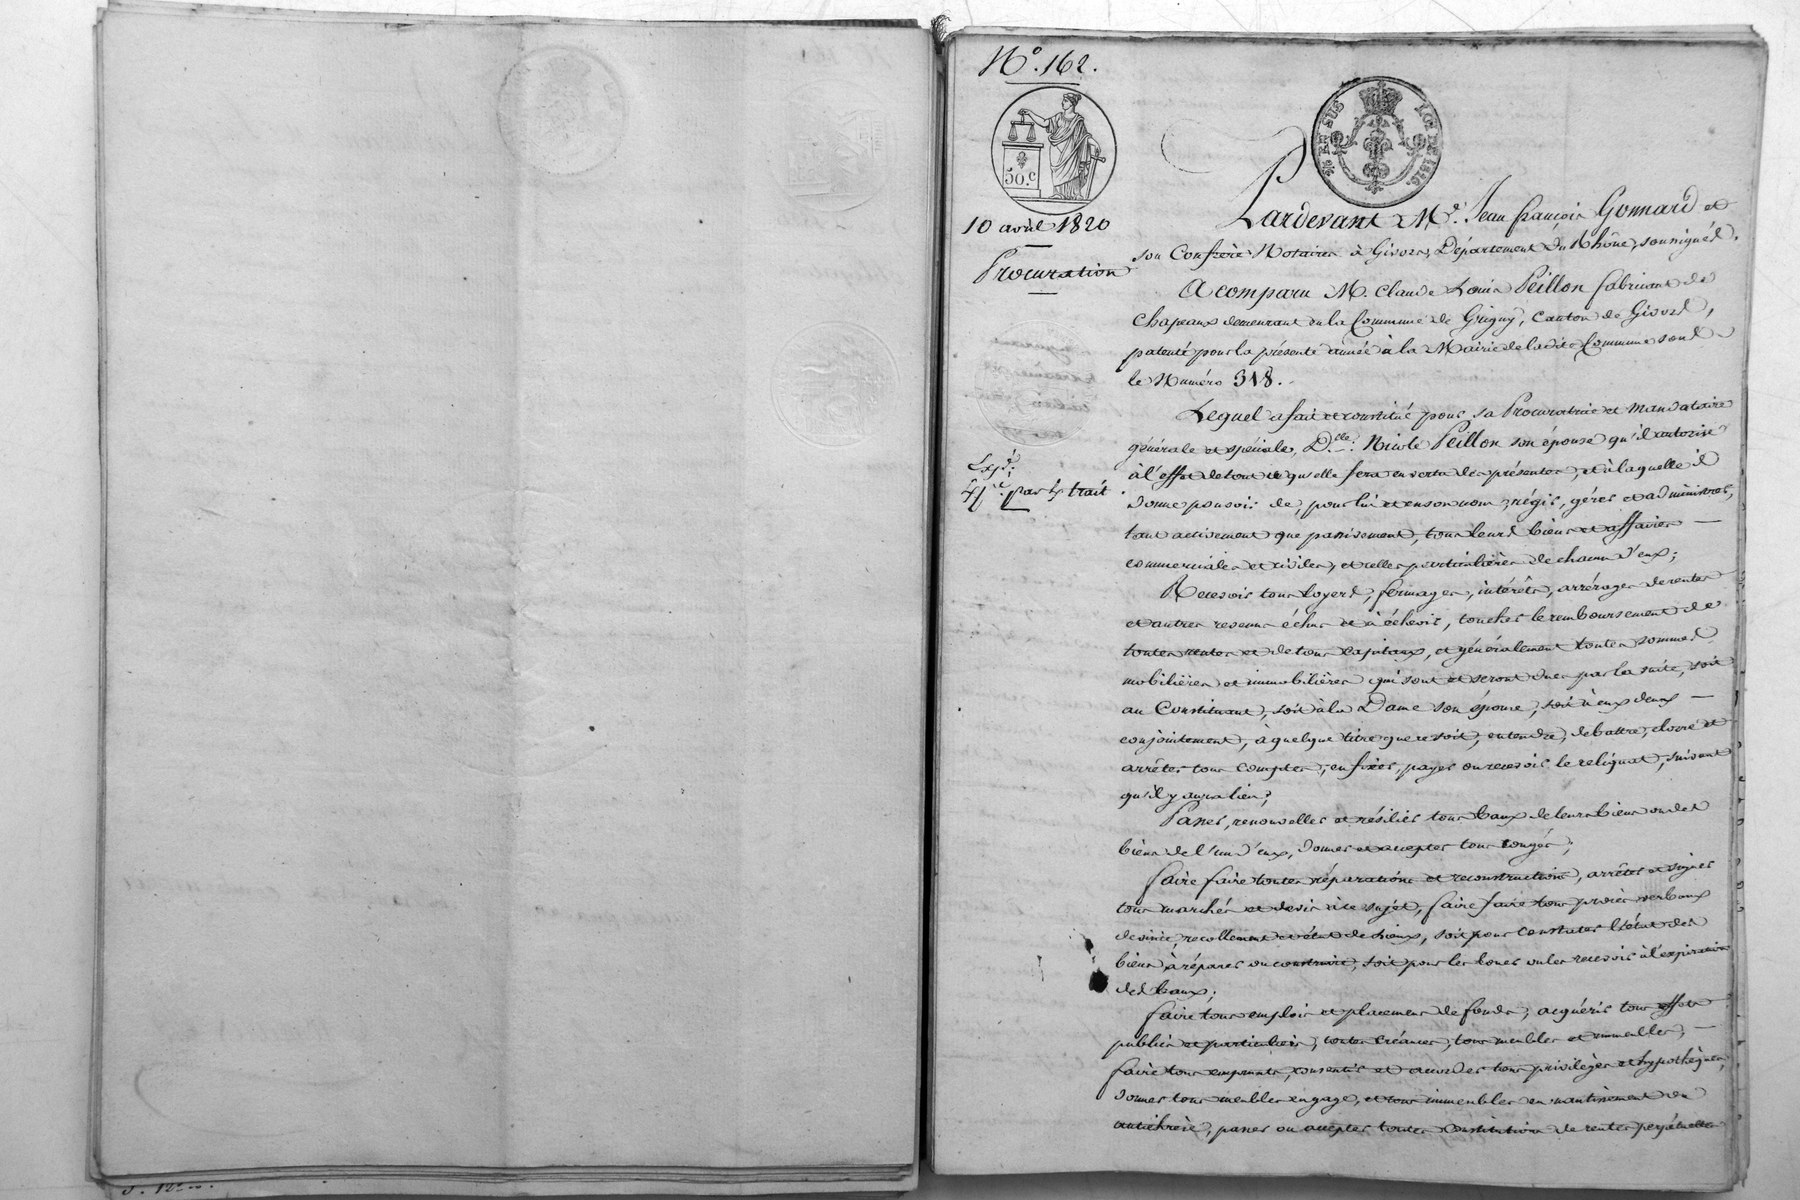 N.° 162.
50.c
5/10 EN SUS LOI DE 1816.
10 avril 1820
Procuration
Pardevant Me. Jean françois Gonnard et
son Confrère Notaires à Givors, Département du Rhône, soussignés.
A comparu M. Claude Louis Peillon fabricant de
Chapeaux demeurant en la Commune de Grigny, Canton de Givors,
patenté pour la présente année à la Mairie de ladite Commune sous
le Numéro 318.
Lequel a fait et constitué pour sa Procuratrice et Mandataire
générale et spéciale, Dlle. Nicole Peillon son épouse qu'il autorise
à l'effet de tout ce qu'elle fera en vertu des présentes, et à laquelle il
donne pouvoir de, pour lui et en son nom, régir, gérer et administrer,
tant activement que passivement, tous leurs biens et affaires
commerciales et civiles, et celles particulières de chacun d'eux;
Recevoir tous Loyers, fermages, intérêts, arrérages de rentes
et autres revenus échus et à échevir, toucher le remboursement de
toutes rentes et de tous capitaux, et généralement toutes sommes
mobilières et immobilières qui sont et seront dues par la suite, soit
au Constituant, soit à la Dame son épouse, soit à eux deux
conjointement, à quelque titre que ce soit, entendre, debattre, clorre et
arrêter tous comptes, en fixer, payer ou recevoir le reliquat, suivant
qu'il y aura lieu;
Passer, renouveller et résilier tous baux de leurs biens ou des
biens de l'un d'eux, donner et accepter tous congés;
faire faire toutes réparations et reconstructions, arrêter et signer
tous marchés et devis à ce sujet, faire faire tous procès verbaux
de visite, recollement et état de Lieux, soit pour constater l'état des
biens à réparer ou construire, soit pour les louer ou les recevoir à l'expiration
des baux;
faire tous emplois et placemens de fonds, acquérir tous effets
publics et particuliers, toutes créances, tous meubles et immeubles,
faire tous emprunts, consentir et accorder tous privilèges et hypothèques,
donner tous meubles en gage, et tous immeubles en nantissement ou
antichrèse, passer ou accepter toutes constitutions de rentes perpétuelles
Expé.
Expé. par Extrait